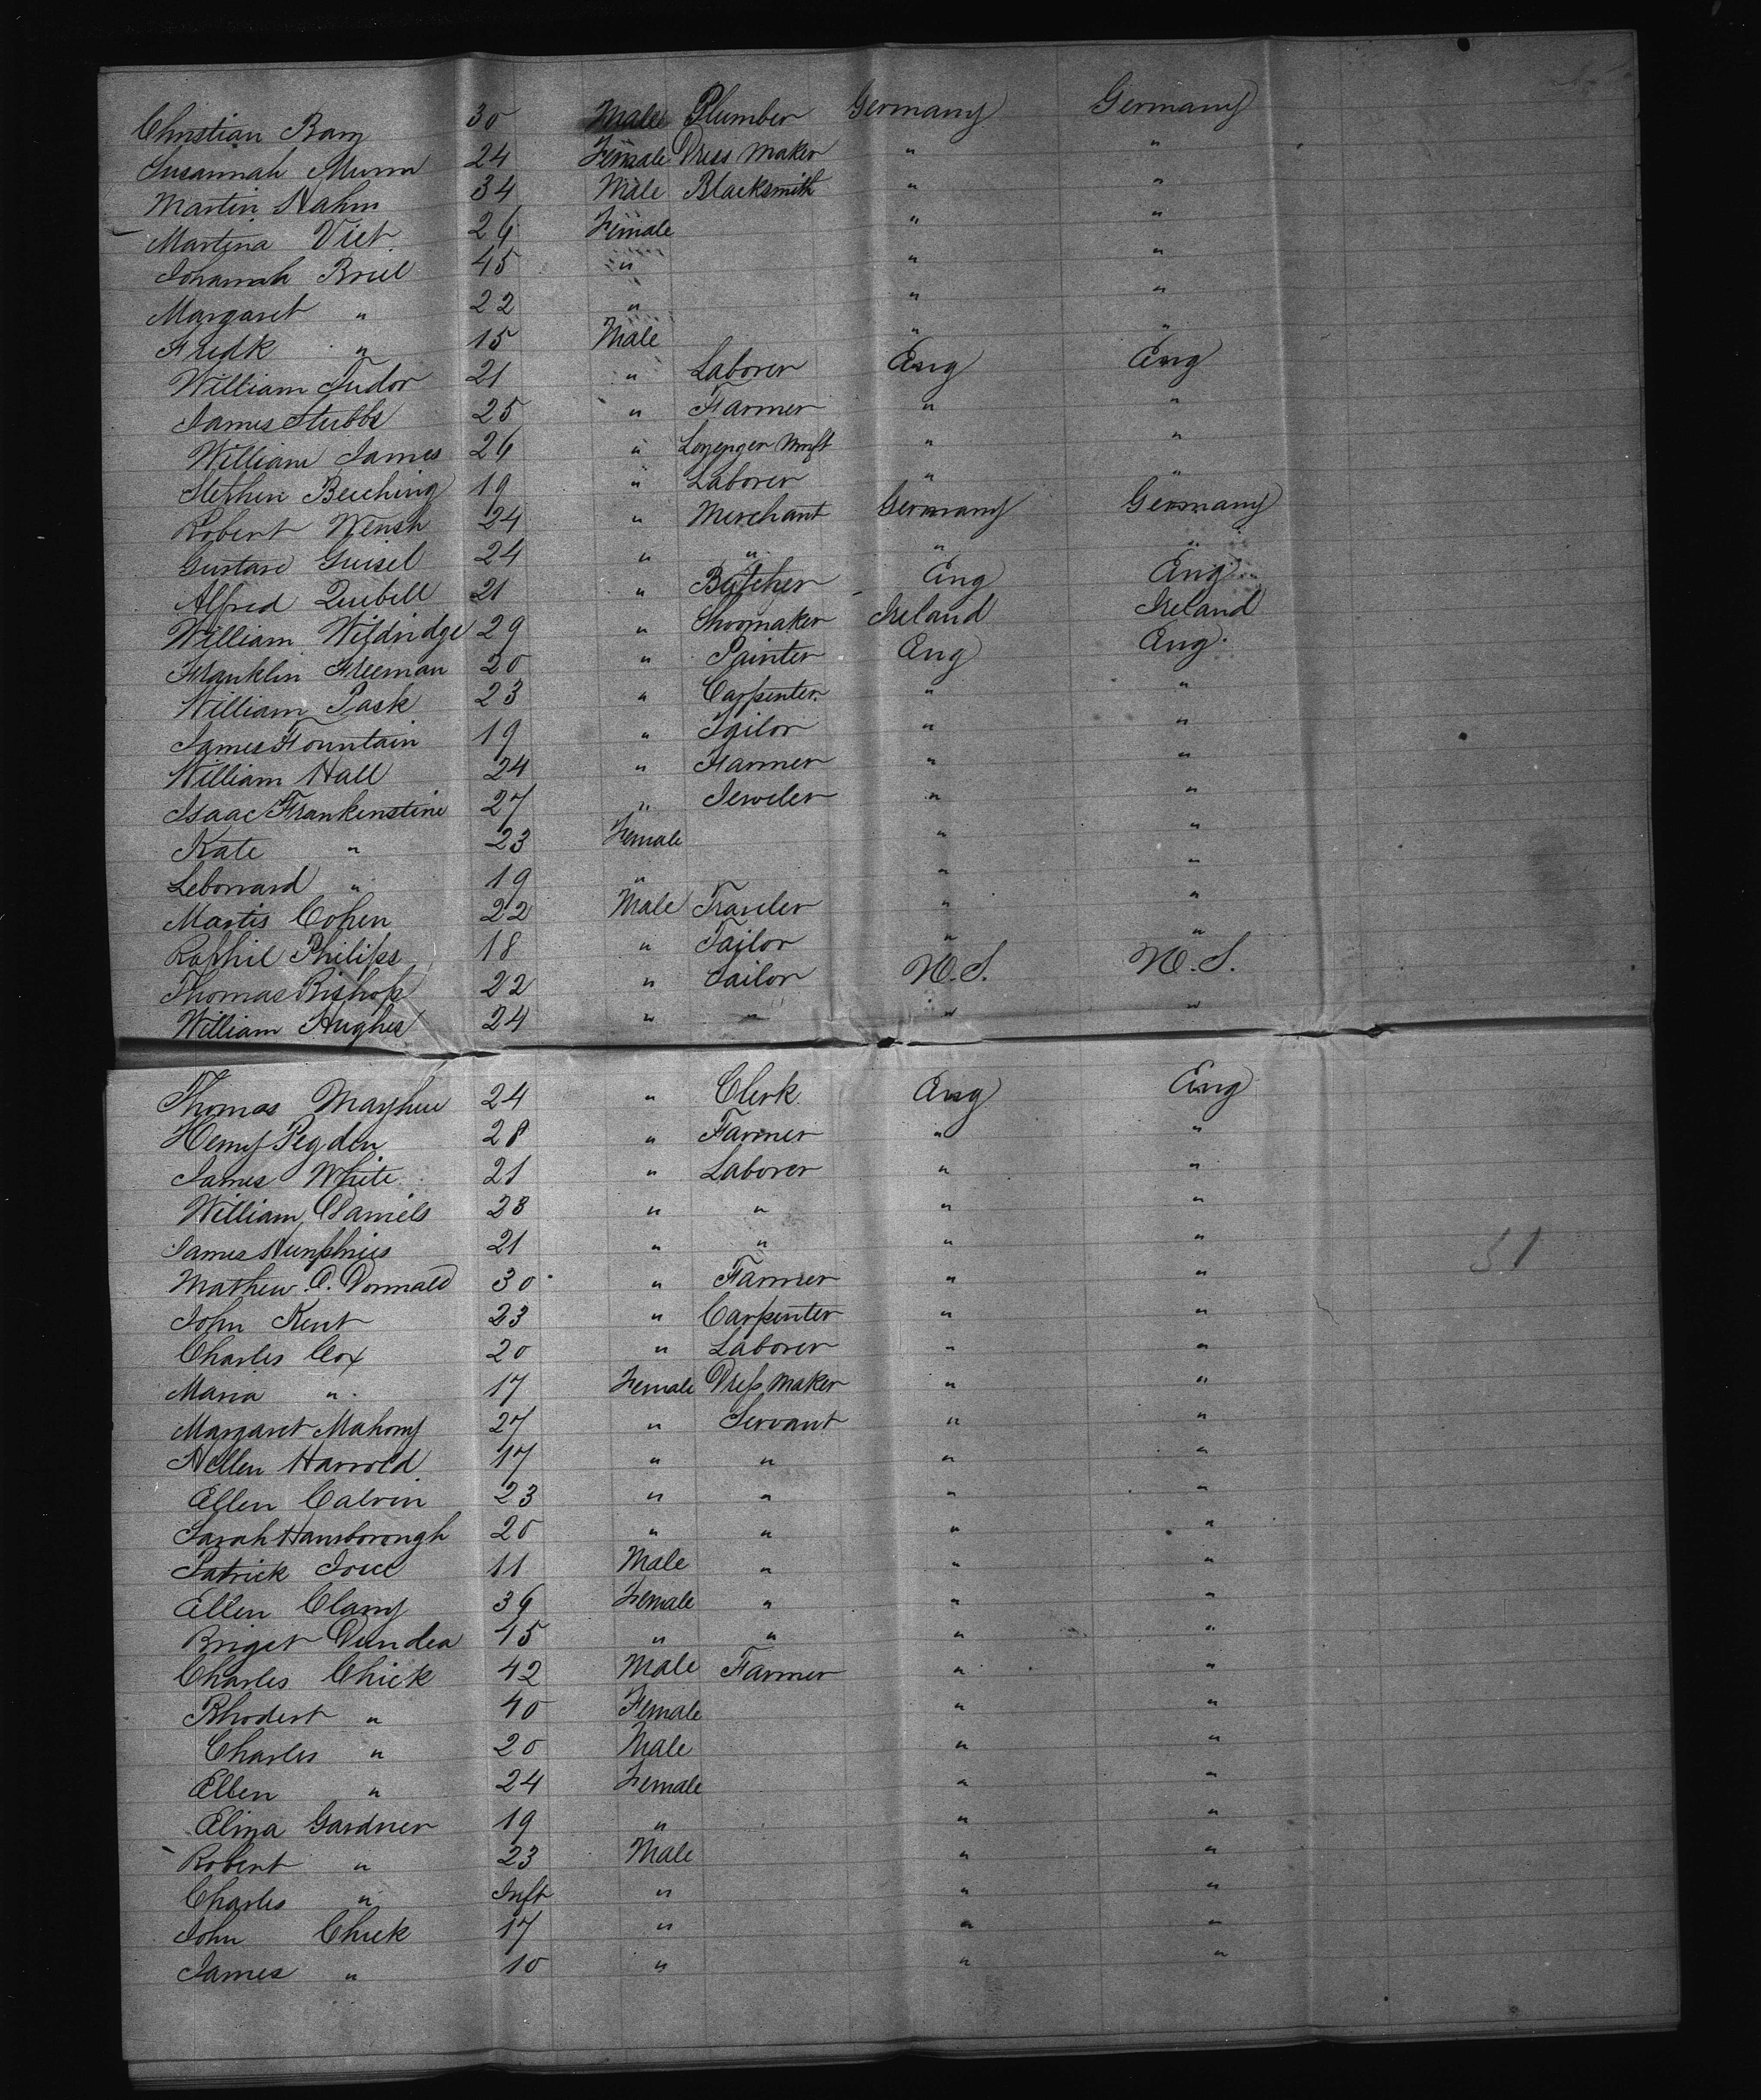 Christian Bary 30 Male Plumber Germany Germany
Susannah Murm 24 Female Dress Maker " "
Martin Hahm 34 Male Blacksmith " "
Martina Viet 26 Female " "
Johannah Briel 45 " " "
Margaret " 22 " " "
Fredk " 15 Male " "
William Tudor 21 " Laborer Eng Eng
James Stubbs 25 " Farmer " "
William James 26 " Lozenger Mnft " "
Stephen Beeching 19 " Laborer " "
Robert Wensh 24 " Merchant Germany Germany
Gustave Guisel 24 " " " "
Alfred Quebell 21 " Butcher Eng Eng
William Wildridge 29 " Shoomaker Ireland Ireland
Franklin Freeman 20 " Painter Eng Eng.
William Pask 23 " Carpenter " "
James Fountain 19 " Tailor " "
William Hall 24 " Farmer " "
Isaac Frankenstine 27 " Jeweler " "
Kate " 23 Female " "
Lebonard " 19 " " "
Martis Cohen 22 Male Traveler " "
Raphil Philips 18 " Tailor " "
Thomas Bishop 22 " Sailor U.S. U.S.
William Hughes 24 " " " "
Thomas Mayhew 24 " Clerk Eng Eng
Henry Pegden 28 " Farmer " "
James White 21 " Laborer " "
William Daniels 23 " " " "
James Humphries 21 " " " "
Mathew O. Donnald 30 " Farmer " "
John Kent 23 " Carpenter " "
Charles Cox 20 " Laborer " "
Maria " 17 Female Dress Maker " "
Margaret Mahony 27 " Servant " "
Hellen Harrold 17 " " " "
Ellen Calvin 23 " " " "
Sarah Hansborough 20 " " " "
Patrick Joice 11 Male " " "
Ellen Clany 36 Female " " "
Briget Dundea 45 " " " "
Charles Chick 42 Male Farmer " "
Rhodert " 40 Female " "
Charles " 20 Male " "
Ellen " 24 Female " "
Eliza Gardner 19 " " "
Robert " 23 Male " "
Charles " Inft " " "
John Chick 17 " " "
James " 10 " " "
51